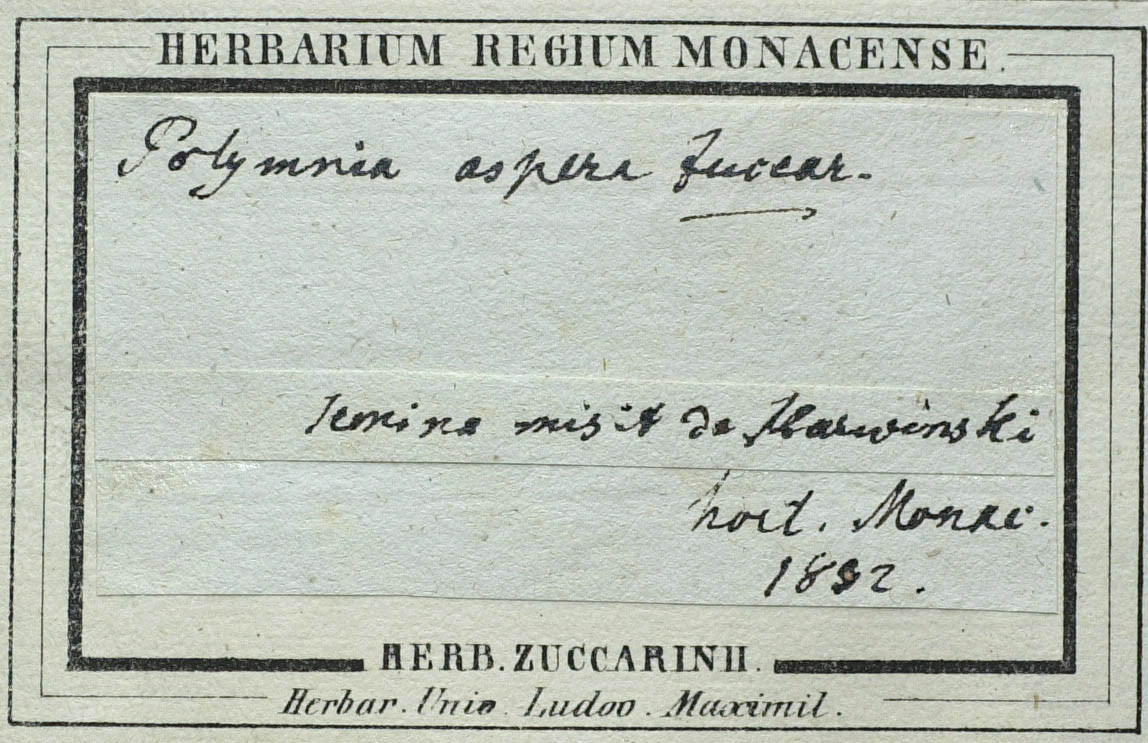 HERBARIUM REGIUM MONACENSE.
Polymnia aspera Zuccar.
Semina misit de Karwinski
hort. Monac.
1832.
HERB. ZUCCARINII.
Herbar. Univ. Ludov. Maximil.